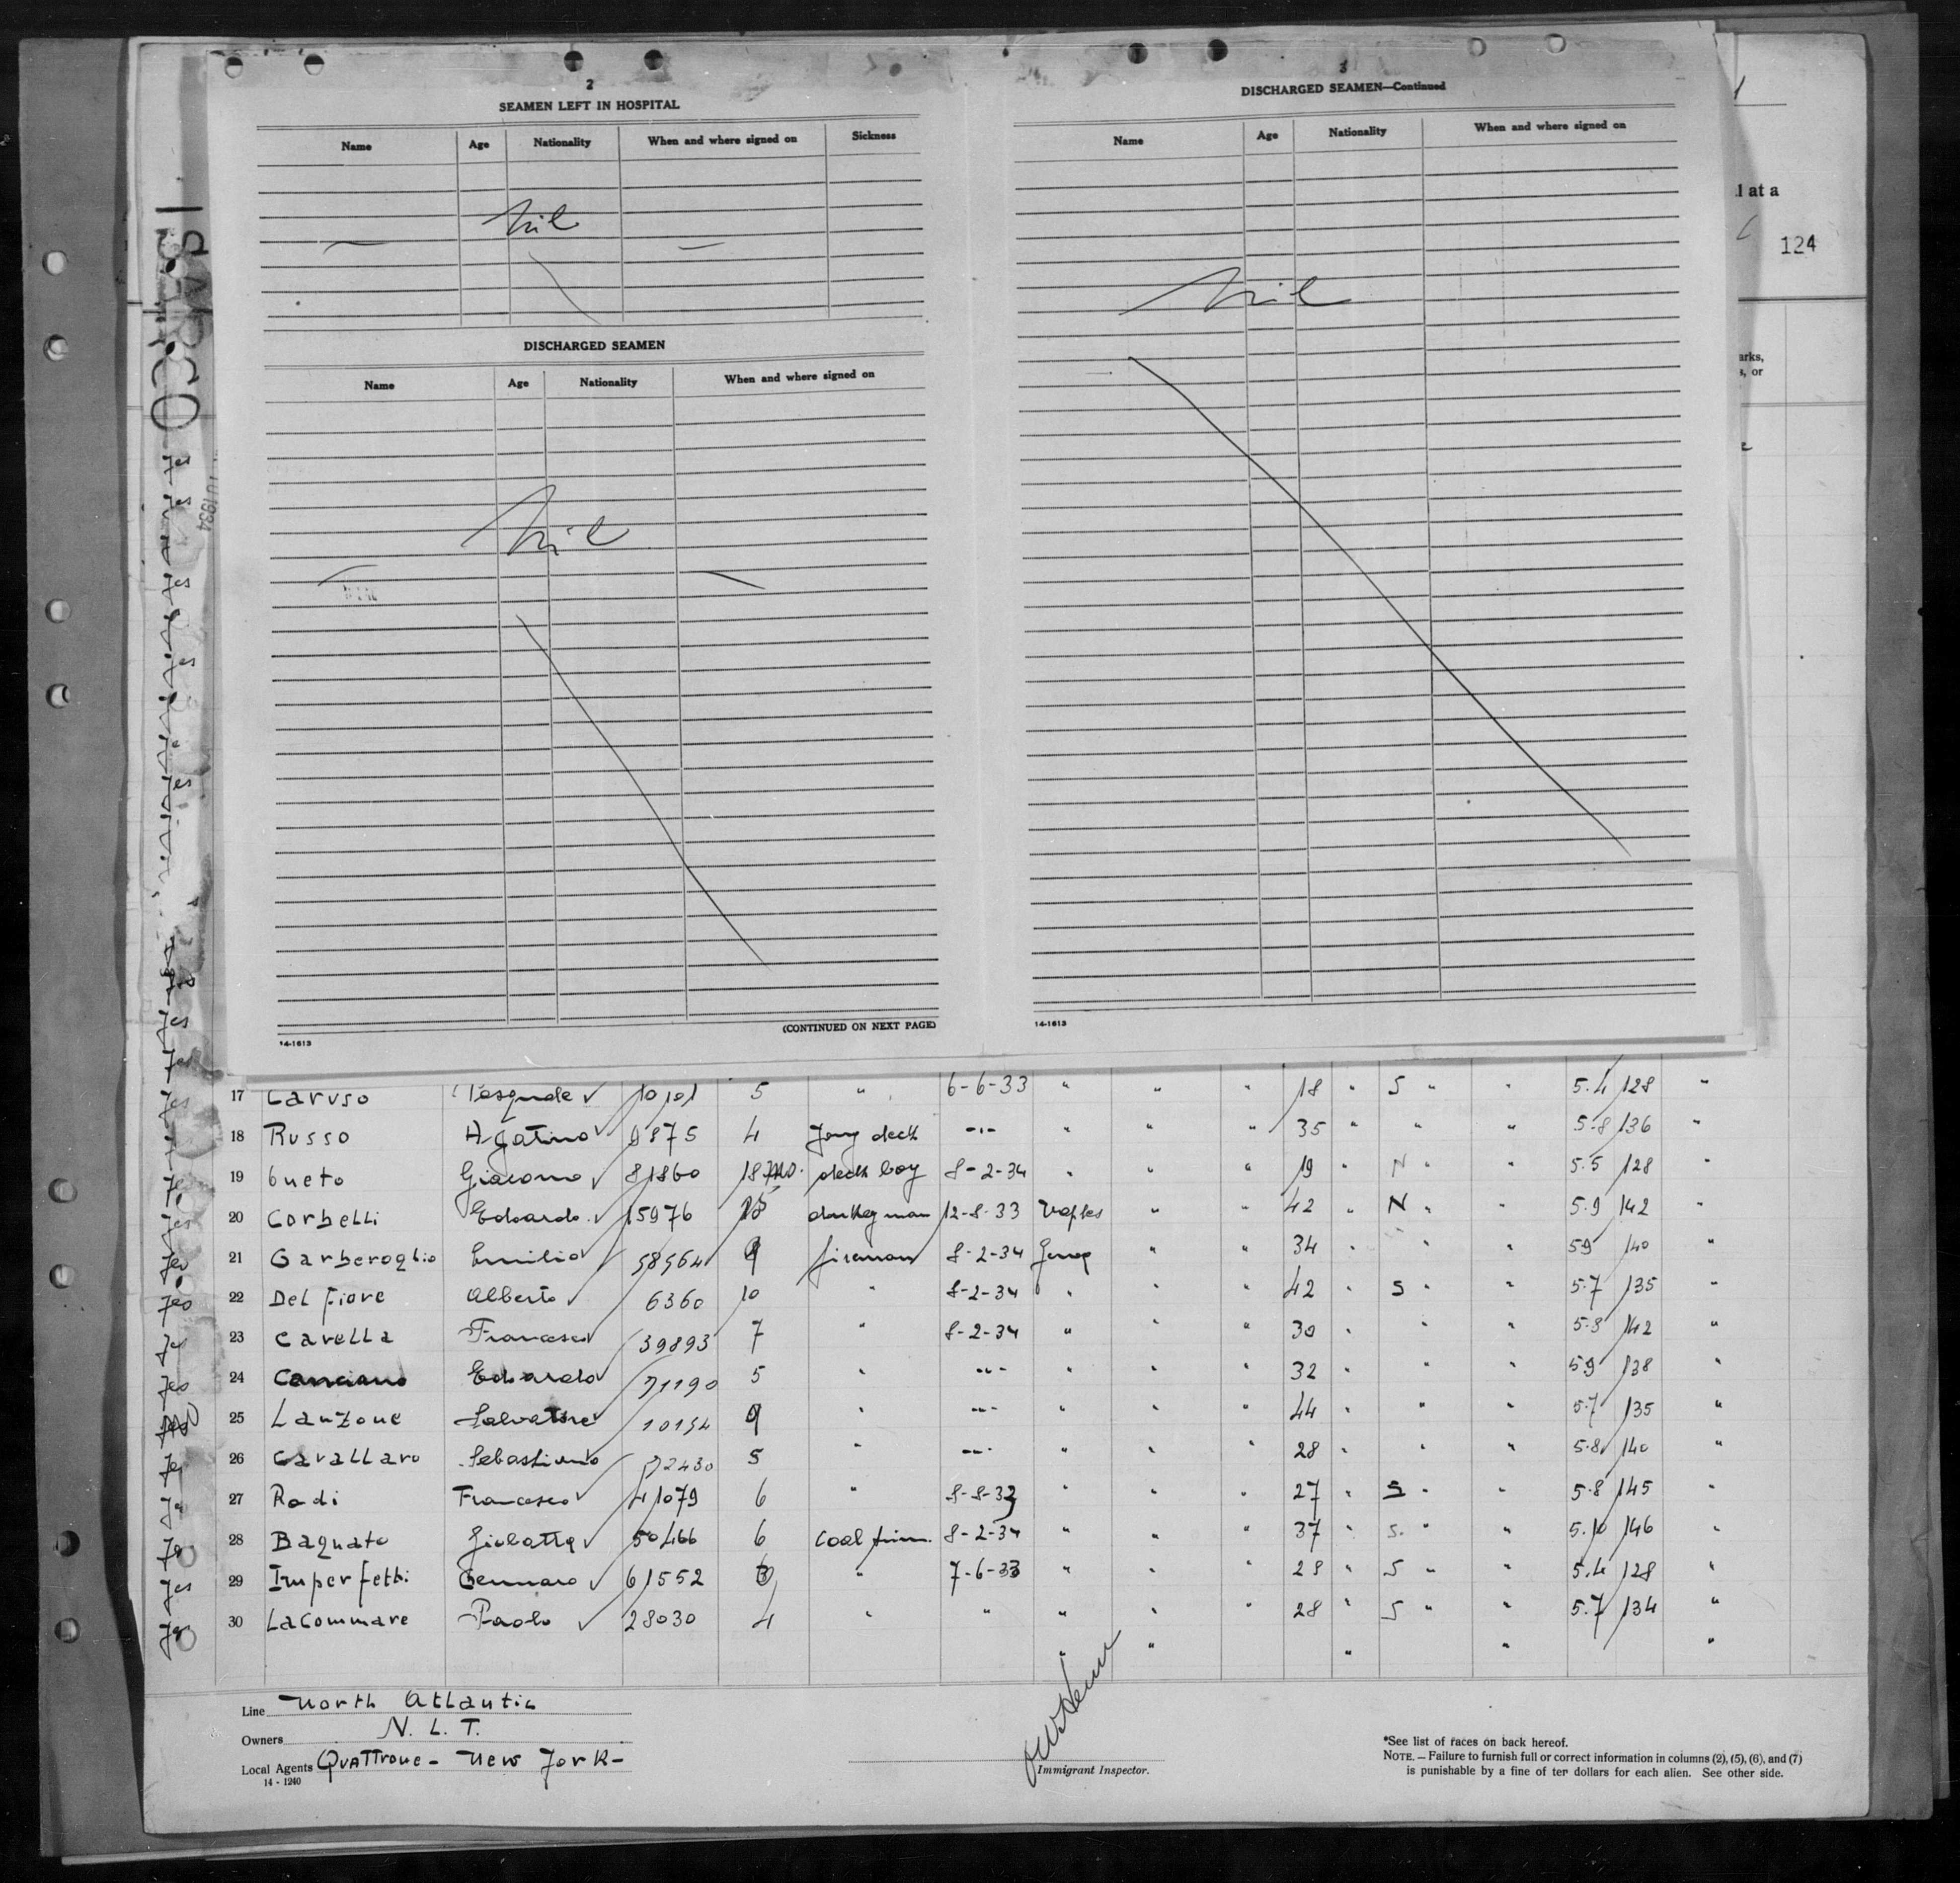 2
SEAMEN LEFT IN HOSPITAL
Name Age Nationality When and where signed on Sickness
Nil
DISCHARGED SEAMEN
Name Age Nationality When and where signed on
Nil
(CONTINUED ON NEXT PAGE)
14-1613
3
DISCHARGED SEAMEN—Continued
Name Age Nationality When and where signed on
Nil
14-1613
l at a
124
arks,
s, or
17 Caruso Pasquale ✓ 10101 5 " 6-6-33 " " " 18 " S " " 5.4 128 "
18 Russo Agatino ✓ 9875 4 Jong deck -"- " " " 35 " " " 5.8 136 "
19 Cueto Giacomo ✓ 81860 18 mo. deck boy 8-2-34 " " " 19 " N " " 5.5 128 "
20 Corbelli Edoardo ✓ 15976 15 donkeyman 12-8-33 Naples " " 42 " N " " 5.9 142 "
21 Garberoglio Emilio ✓ 58564 9 fireman 8-2-34 Genoa " " 34 " " " 59 140 "
22 Del Fiore Alberto ✓ 6360 10 " 8-2-34 " " " 42 " S " " 5.7 135 "
23 Cavella Francesco ✓ 39893 7 " 8-2-34 " " " 30 " " " 5.8 142 "
24 Canciano Edoardo ✓ 71190 5 " -"- " " " 32 " " " 59 138 "
25 Lanzone Salvatore ✓ 10154 9 " -"- " " " 44 " " " 5.7 135 "
26 Cavallaro Sebastiano ✓ 72430 5 " -"- " " " 28 " " " 5.8 140 "
27 Rodi Francesco ✓ 41079 6 " 8-8-33 " " " 27 " S " " 5.8 145 "
28 Bagnato Giobatta ✓ 50466 6 Coal trim. 8-2-34 " " " 37 " S. " " 5.10 146 "
29 Imperfetti Gennaro ✓ 61552 3 " 7-6-33 " " " 28 " S " " 5.4 128 "
30 LaCommare Paolo ✓ 28030 4 " " " " " 28 " S " " 5.7 134 "
" " " " "
Line North Atlantic
Owners N. L. T.
Local Agents Quattrone - New York -
14 - 1240
Immigrant Inspector.
*See list of races on back hereof.
NOTE. — Failure to furnish full or correct information in columns (2), (5), (6), and (7)
is punishable by a fine of ten dollars for each alien. See other side.